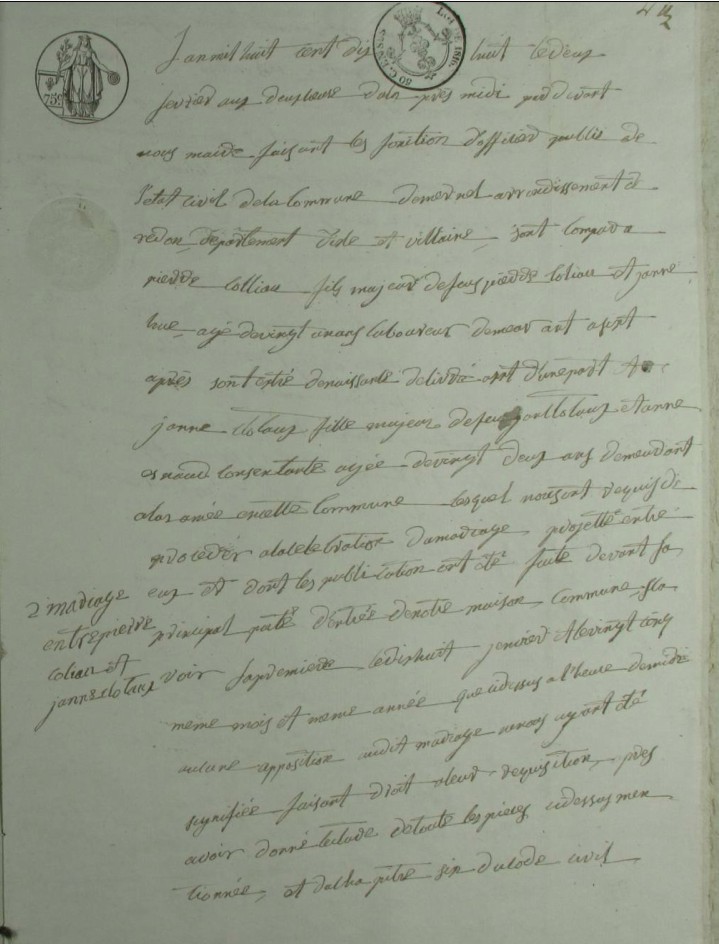 75c
L'an mil huit cent dix huit le deux
fevrier aux deux heure d'ala près midi par devant
nous maire faisant les fonction d'officier public de
l'etat civil de la Commune de mernel arrondissement de
redon, departement d'isle et villaine, sont Compara
pierre Collian fils majeur de feus pierre Colian et janne
hue, agé de vingt un ans laboureur demeurant
après sont extré denaissante delivré ont d'une part
janne Clolaux fille majeur de feu et anne
esnaud Consentante agée de vingt deux ans demeurant
ala ramée encette Commune lesquel nousont requis de
proceder ala celebration dumariage projetté entre
eux et dont les publication ont été faite devant la
principal porte d'entrée denotre maison Commune sla
voir lapremiere ledixhuit jenvier et levingt cinq
meme mois et meme année que cidessus a l'heure demidi
aucune apposition audit mariage nenous ayant été
signifiée faisant droit aleur requisition, près
avoir donné lecture detoute les pieces cidessus men
tionnée, et duchapitre six ducode civil
2e mariage
entre pierre
colian et
janne clolaux